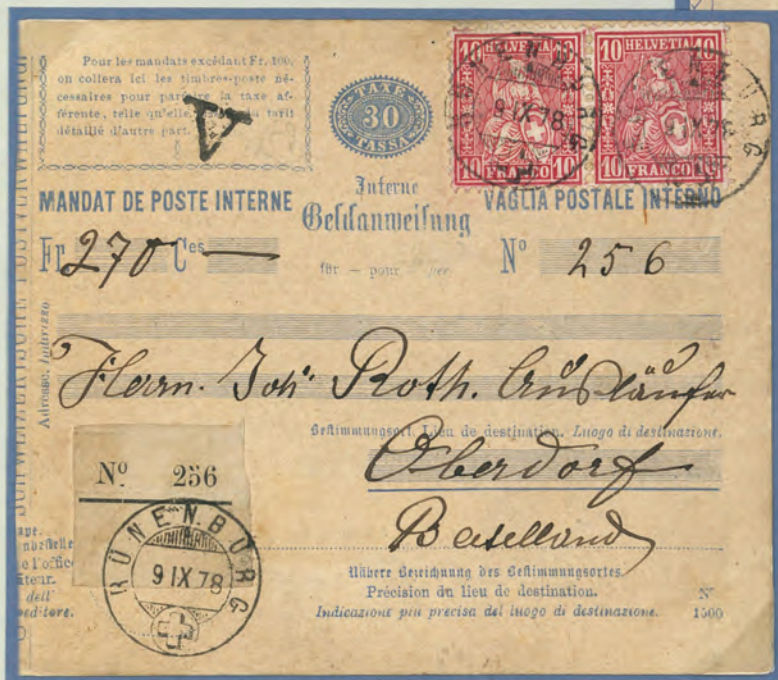 Pour les mandats excédant Fr. 100,
on collera ici les timbres-poste né-
cessaires pour parfaire la taxe af-
férente, telle qu'elle tarif
détaillé d'autre part.
A
TAXE
30
TASSA
10 HELVETIA 10
10 FRANCO 10
10 HELVETIA 10
10 FRANCO 10
9 IX 78
9 IX 78
MANDAT DE POSTE INTERNE
Interne
Geldanweisung
VAGLIA POSTALE INTERNO
Fr. 270 Ces —
für – pour – per
No 256
Adresse. Indirizzo
SCHWEIZERISCHE POSTVERWALTUNG
Herrn. Joh. Roth. Ausläufer
Bestimmungsort. Lieu de destination. Luogo di destinazione.
Oberdorf
Baselland
No 256
RÜNENBURG
9 IX 78
l'office
dell'
Nähere Bezeichnung des Bestimmungsortes.
Précision du lieu de destination.
Indicazione più precisa del luogo di destinazione.
No
1500